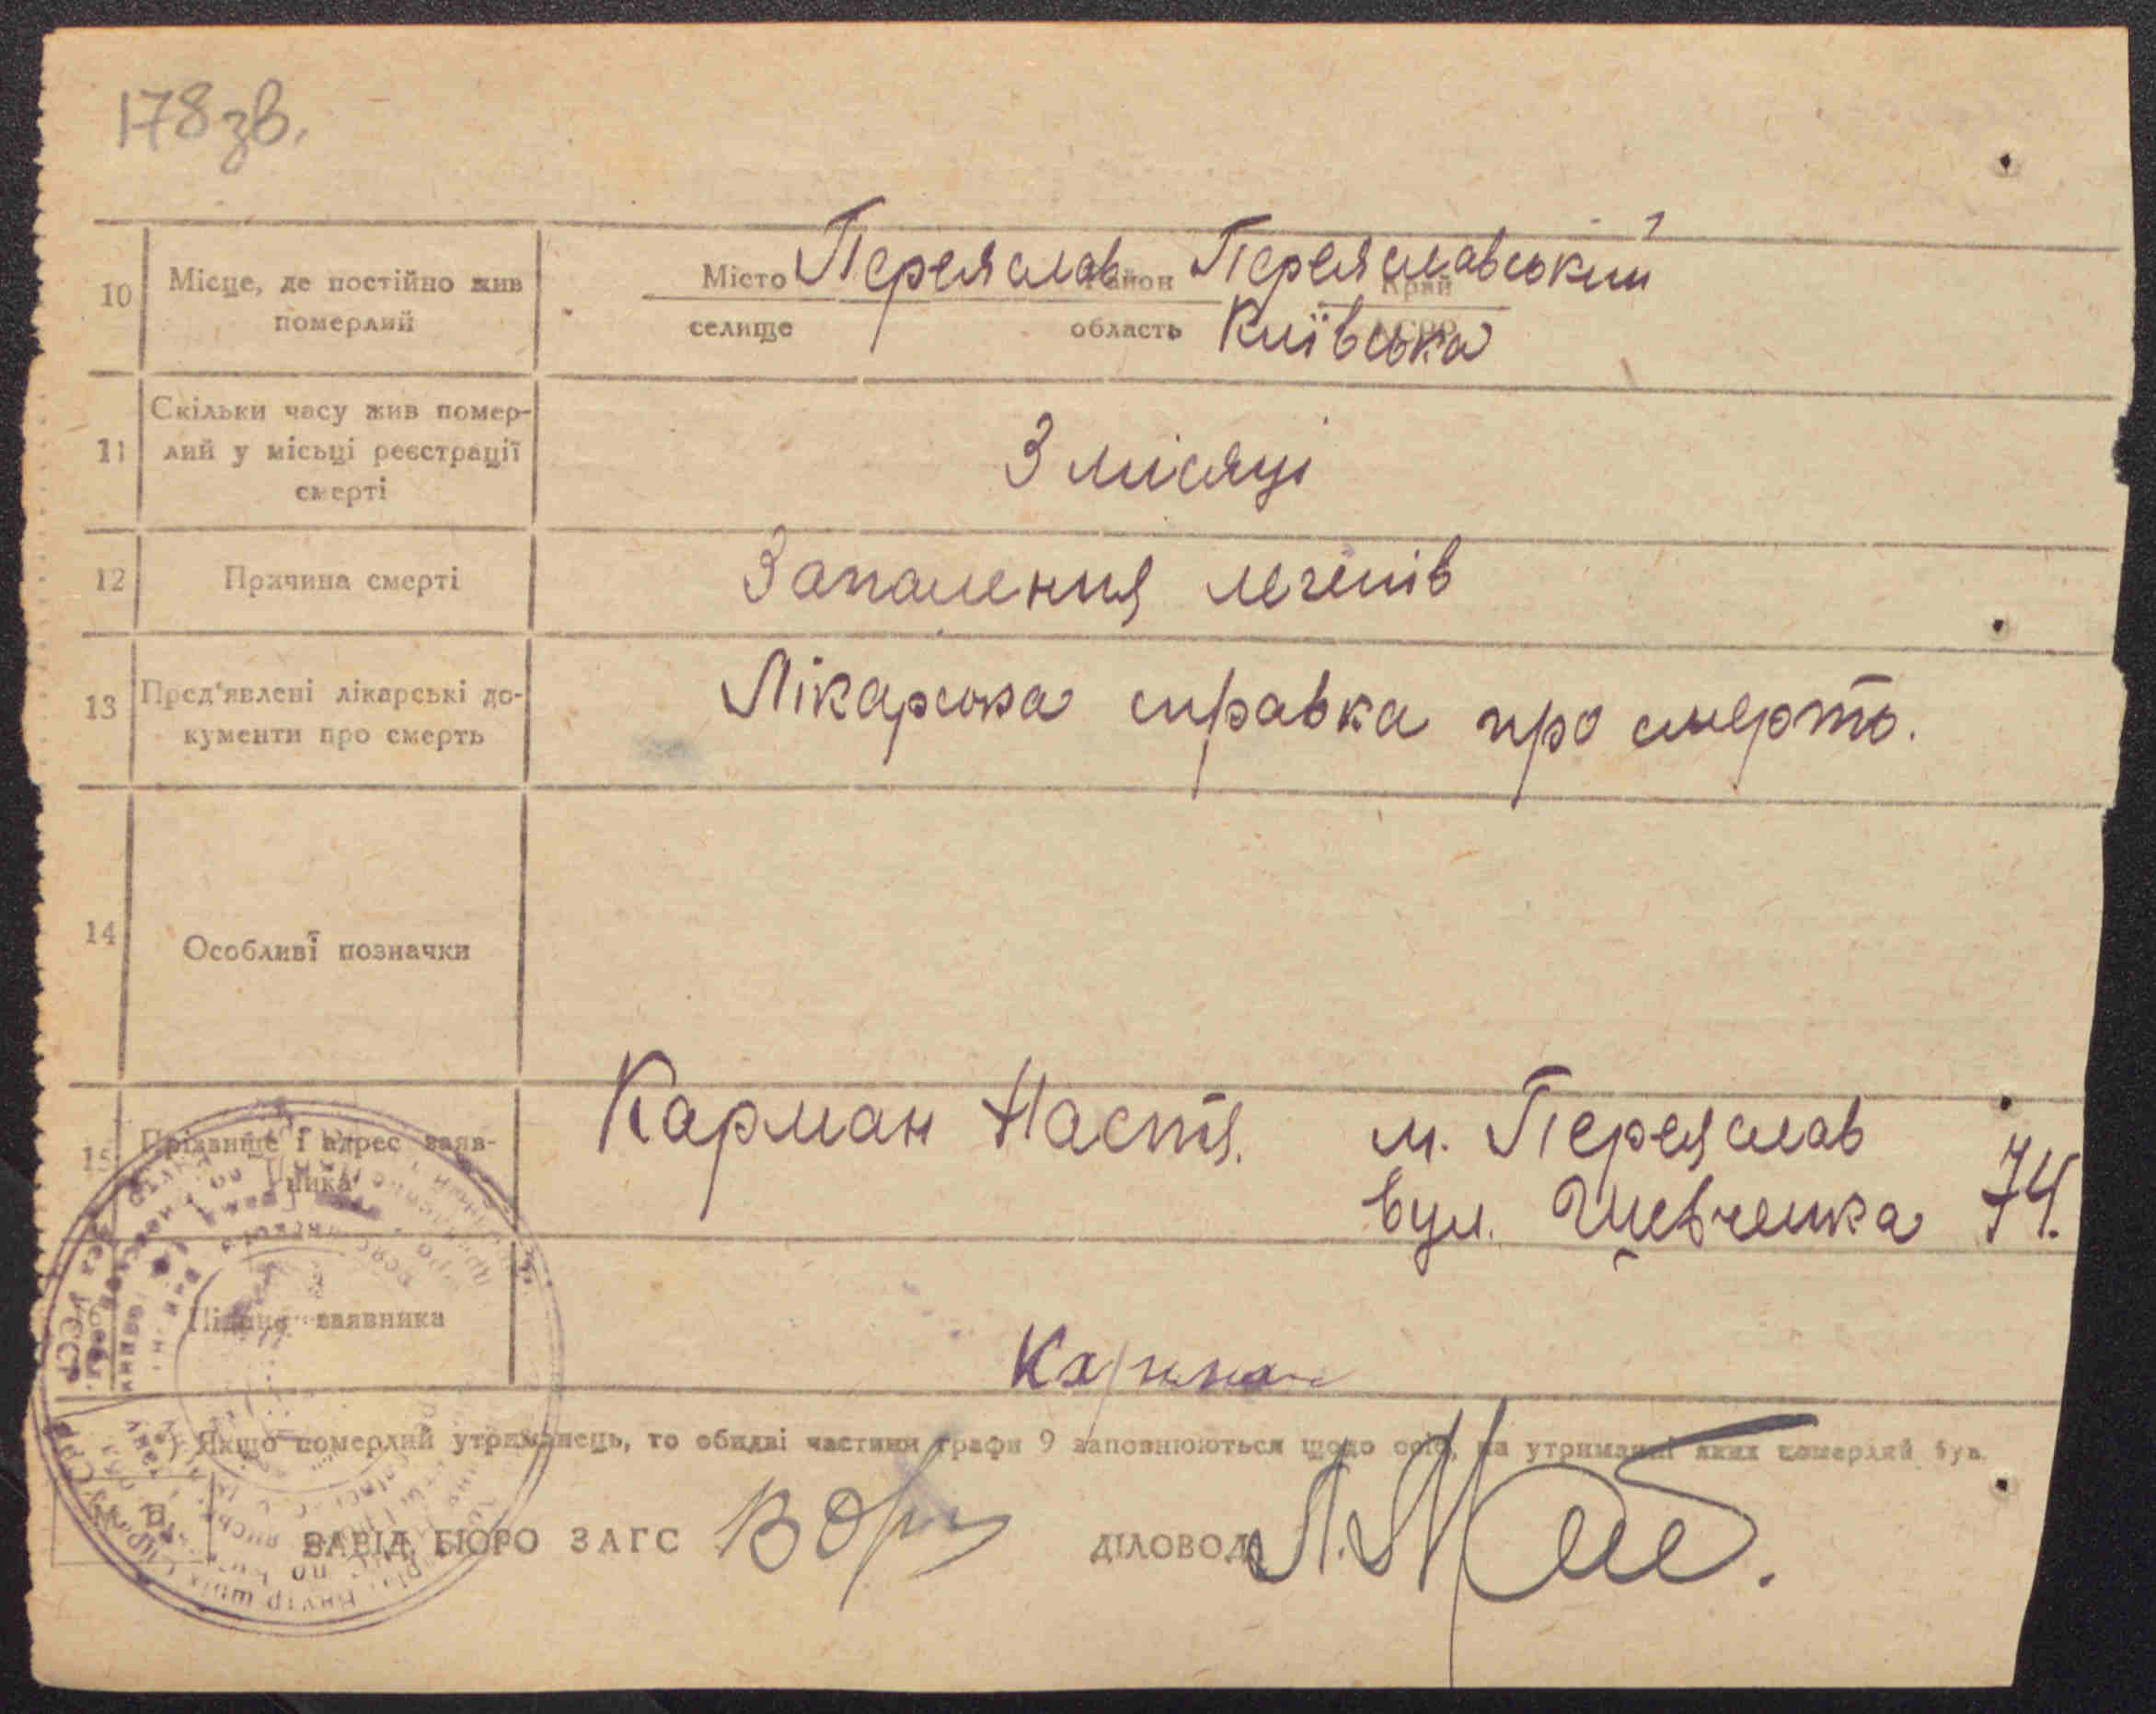 178 зв.
10 Місце, де постійно жив померлий
Місто Переяслав Район Переяславський Край
селище область Київська АСРР
11 Скільки часу жив помер-
лий у місьці реєстрації
смерті
3 місяці
12 Причина смерті Запалення легенів
13 Пред'явлені лікарські до-
кументи про смерть
Лікарська справка про смерть.
14 Особливі позначки
15 Прізвище і адрес заяв-
ника
Карман Настя. м. Переяслав
вул. Шевченка 74.
Підпис заявника
Карман
) Якщо померлий утриманець, то обидві частини графи 9 заповнюються щодо осіб, на утриманні яких померлий був
М. П.
ЗАВІД. БЮРО ЗАГС ДІЛОВОД